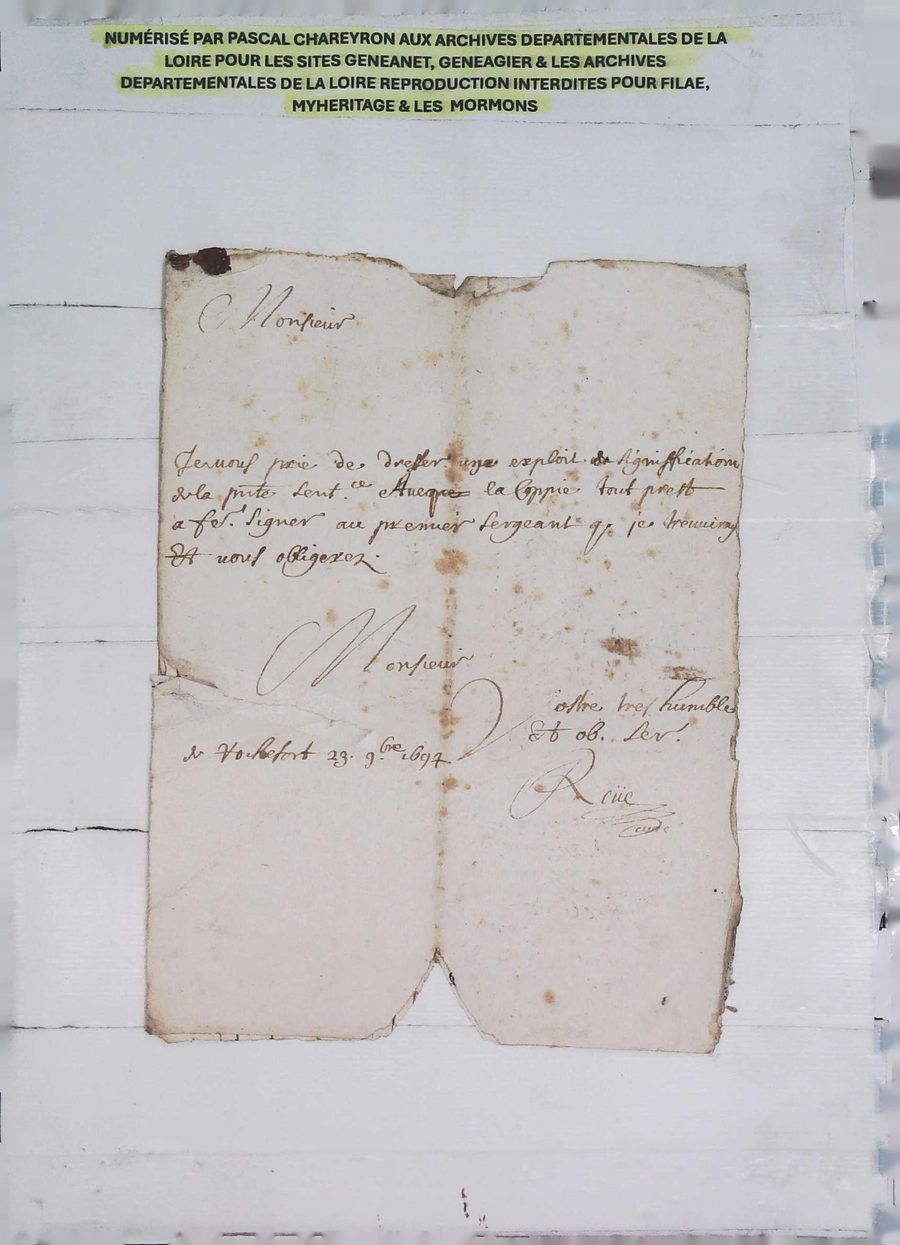 NUMÉRISÉ PAR PASCAL CHAREYRON AUX ARCHIVES DEPARTEMENTALES DE LA
LOIRE POUR LES SITES GENEANET, GENEAGIER & LES ARCHIVES
DEPARTEMENTALES DE LA LOIRE REPRODUCTION INTERDITES POUR FILAE,
MYHERITAGE & LES MORMONS
Monsieur
Je vous prie de dresser une exploit de signiffication
de la pnte sent.ce et avecque la Coppie tout prest
a fe.r signer au premier sergeant q. je treuviray
Et vous obligerez.
Monsieur
Vostre tres humble
Et ob. ser.r
de Rochefort 23. 9.bre 1694
Reüe
curé